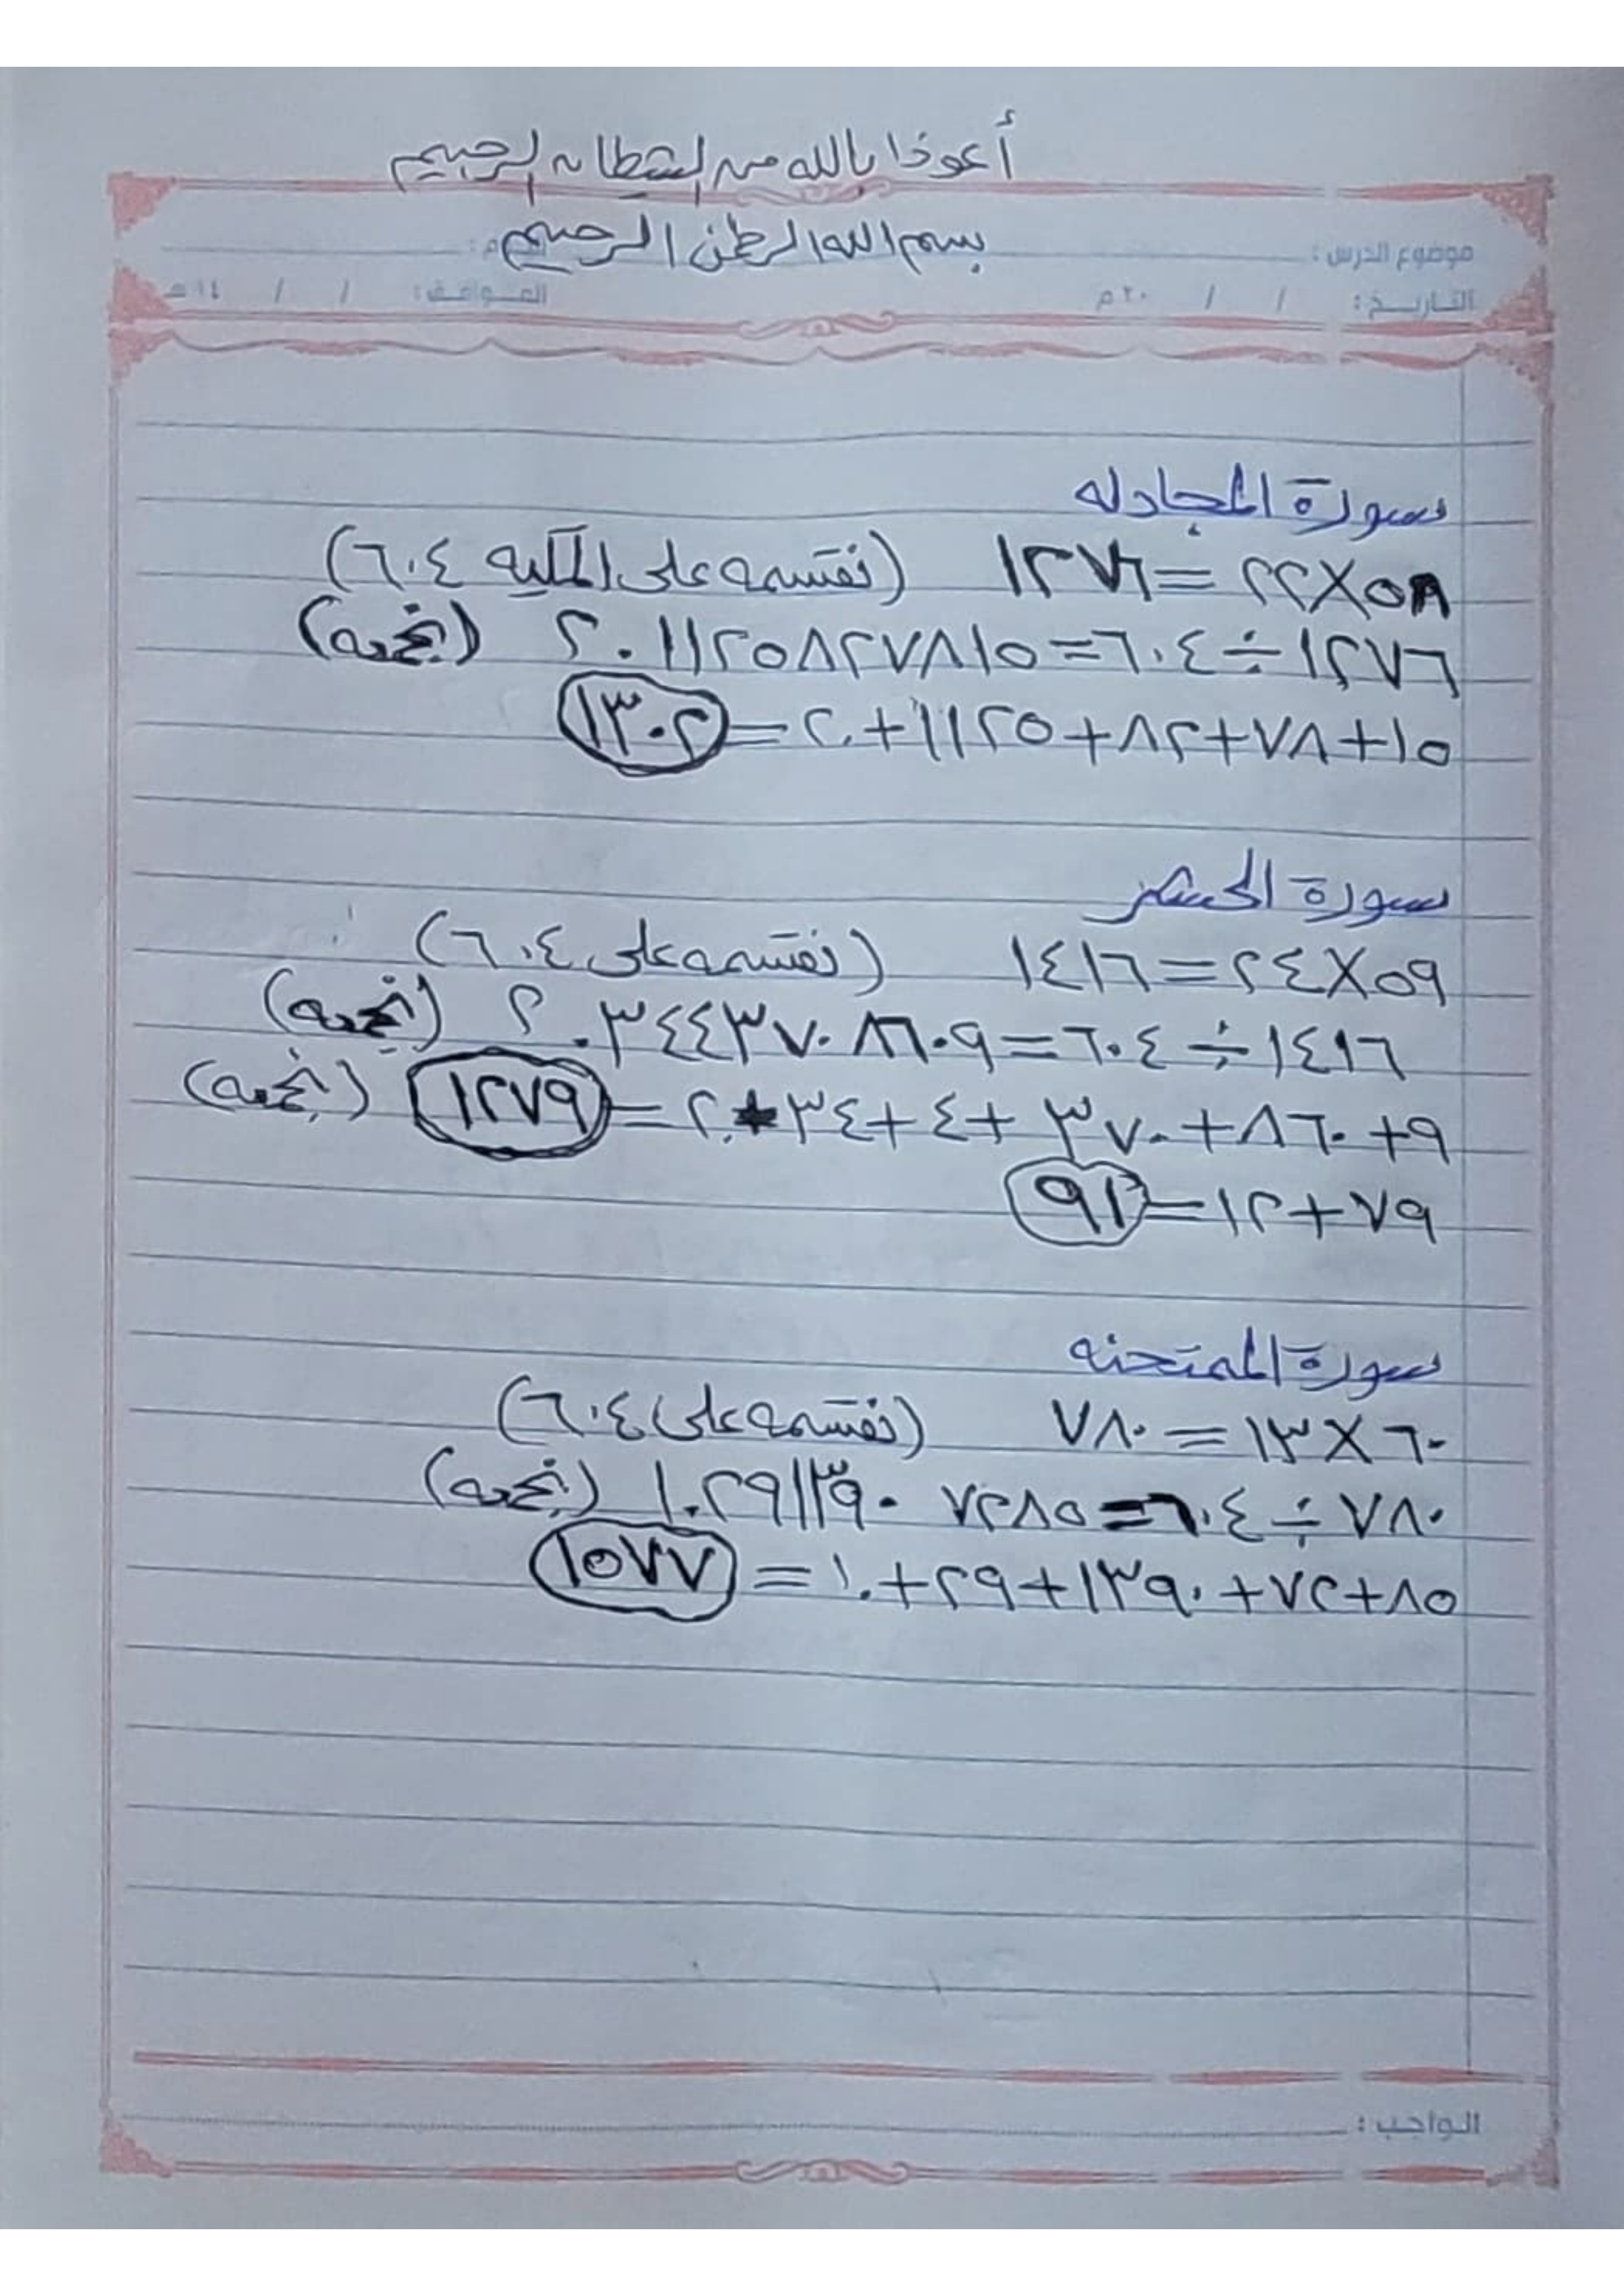 أعوذا بالله من الشيطان الرجيم
بسم الله الرحمن الرحيم
موضوع الدرس :
التاريخ : / / ٢٠م الموافق : / / ١٤هـ
سورة المجادله
٥٨×٢٢=١٢٧٦ (نقسمه على المكيه ٦٠٤)
١٢٧٦÷٦٠٤=٢٠١١٢٥٨٢٧٨١٥ (نجمعه)
١٥+٧٨+٨٢+١١٢٥+٢٠=١٣٠٢
سورة الحشر
٥٩×٢٤=١٤١٦ (نقسمه على ٦٠٤)
١٤١٦÷٦٠٤=٢٠٣٤٤٣٧٠٨٦٠٩ (نجمعه)
٩+٨٦٠+٣٧٠+٤+٣٤+٢٠=١٢٧٩ (نجمعه)
٧٩+١٢=٩١
سورة الممتحنه
٦٠×١٣=٧٨٠ (نقسمه على ٦٠٤)
٧٨٠÷٦٠٤=١٠٢٩١٣٩٠٧٢٨٥ (نجمعه)
٨٥+٧٢+١٣٩٠+٢٩+١٠=١٥٧٧
الواجب :